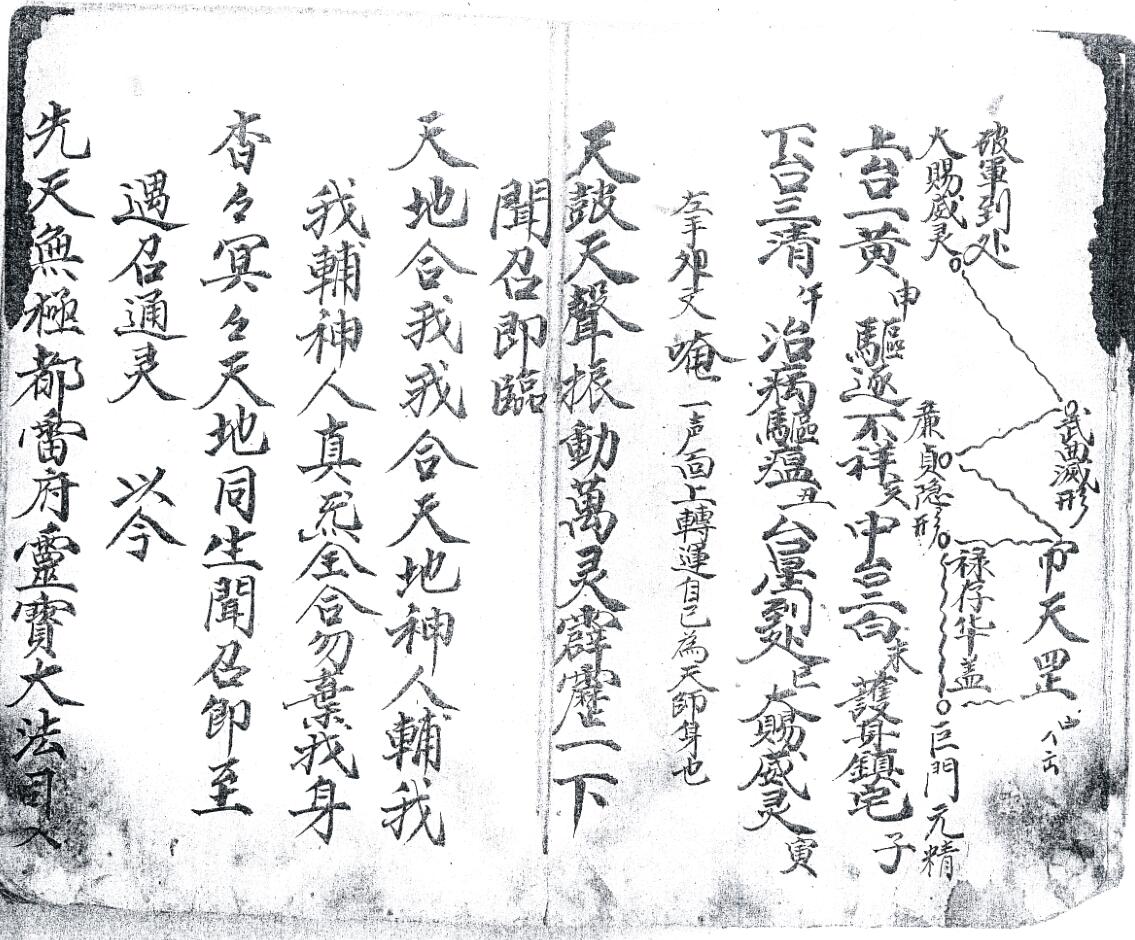 帀天罡
武曲滅形
禄存华盖
破軍到处
大賜威灵
亷貞隐形
巨門元精
上台一黄申驅逐不祥亥中台二白未護身鎮宅子
下台三清午治病驅瘟丑台星到处巳大賜威灵寅
左手外叉唵一声面上轉運自己為天師身也
天鼓天聲振動萬灵霹靂一下
聞召即臨
天地合我我合天地神人輔我
我輔神人真炁全合勿棄我身
杳々冥々天地同生聞召即至
遇召通灵 以今
先天無極都雷府靈寶大法司入